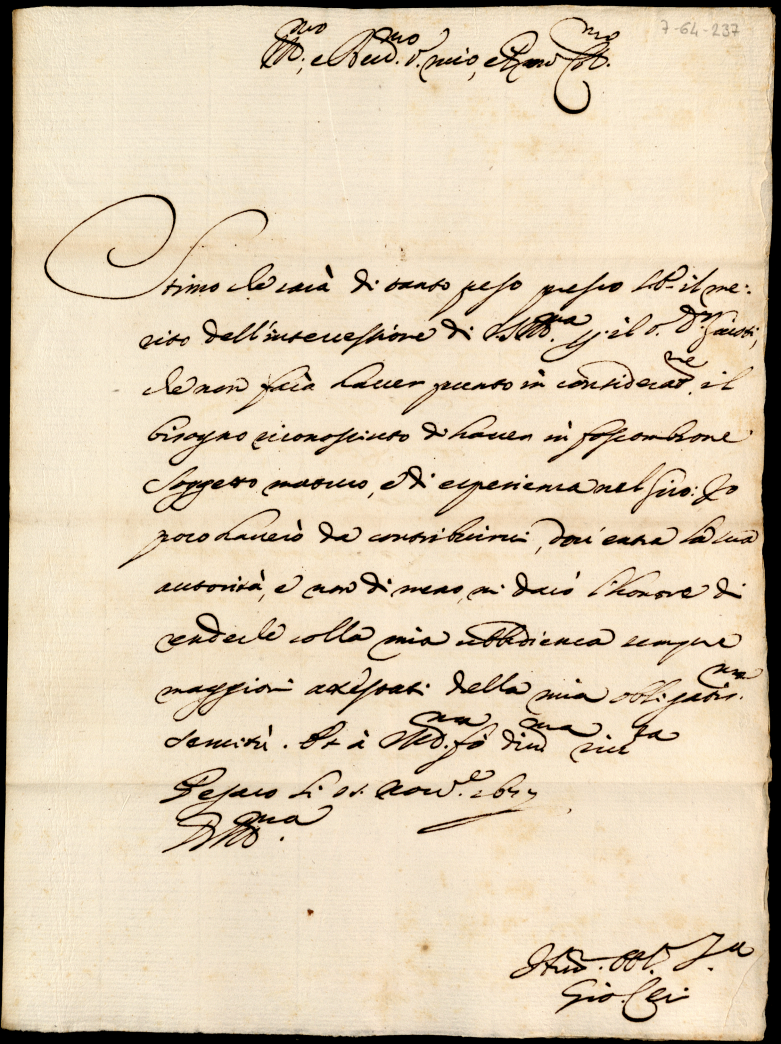 7-64-237
Ill.mo, e Rev.mo S. mio, e Pron Col.mo
Stimo che sarà di tanto peso presso il me:
rito dell'intercessione di V.S. Ill.ma p. il S. D.r
che non farà haver punto in considerat.ne il
bisogno riconosciuto di haver in fossombrone
soggetto maturo, e di esperienza nel sito: Io
poco haverò da contribuirvi, dov'entra la sua
autorità, e non di meno, mi darò l'honore di
renderle colla mia ubbidienza sempre
maggiori attestati della mia obligatis.ma
servitù. Et à V.S. Ill.ma fò div.ma riv.za
Pesaro li Nov.e
V.S. Ill.ma
Hu. Obl. S.re
Gio.